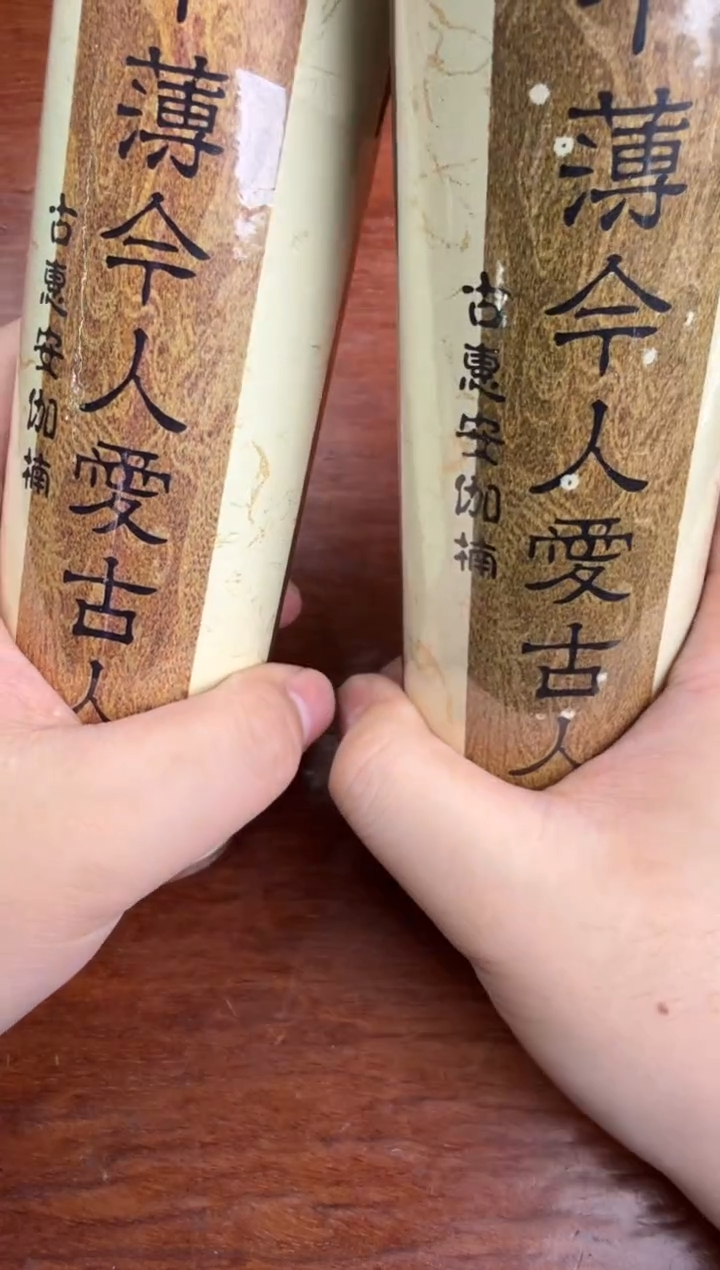 不薄今人愛古人
古惠安伽楠
不薄今人愛古人
古惠安伽楠